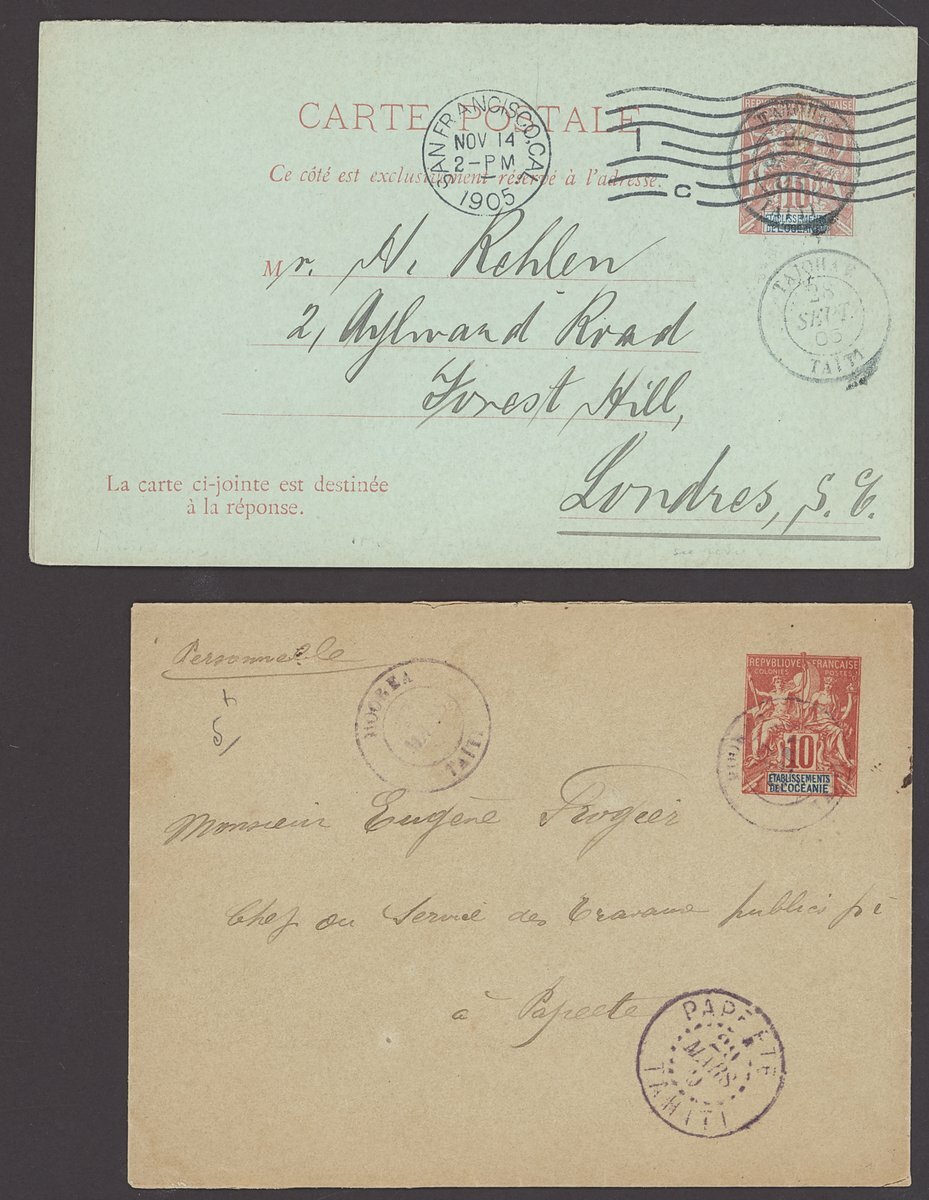 CARTE POSTALE
Ce côté est exclusivement réservé à l'adresse.
SAN FRANCISCO, CAL.
NOV 14
2-PM
1905
1
C
REPUBLIQUE FRANÇAISE
10
ETABLISSEMENTS
DE L'OCÉANIE
TAIOHAE
28
SEPT.
05
TAÏTI
Mr. H. Rehlen
2, Aylward Road
Forest Hill,
Londres, S.E.
La carte ci-jointe est destinée
à la réponse.
Personnelle
5
MOOREA
TAITI
REPVBLIQVE FRANÇAISE
COLONIES POSTES
10
ETABLISSEMENTS
DE L'OCÉANIE
Monsieur Eugène Frogier
Chef du Service des Travaux publics pi
à Papeete
PAPEETE
29
MARS
TAHITI